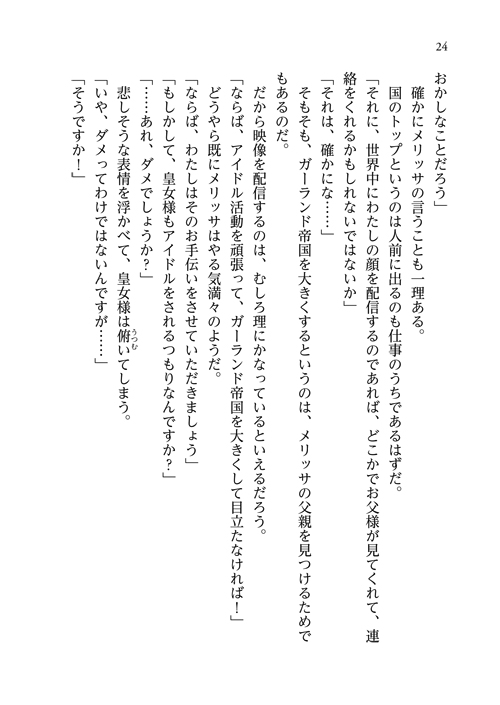 24
おかしなことだろう」
　確かにメリッサの言うことも一理ある。
　国のトップというのは人前に出るのも仕事のうちであるはずだ。
「それに、世界中にわたしの顔を配信するのであれば、どこかでお父様が見てくれて、連
絡をくれるかもしれないではないか」
「それは、確かにな……」
　そもそも、ガーランド帝国を大きくするというのは、メリッサの父親を見つけるためで
もあるのだ。
　だから映像を配信するのは、むしろ理にかなっているといえるだろう。
「ならば、アイドル活動を頑張って、ガーランド帝国を大きくして目立たなければ！」
　どうやら既にメリッサはやる気満々のようだ。
「ならば、わたしはそのお手伝いをさせていただきましょう」
「もしかして、皇女様もアイドルをされるつもりなんですか？」
「……あれ、ダメでしょうか？」
　悲しそうな表情を浮かべて、皇女様は俯いてしまう。
うつむ
「いや、ダメってわけではないんですが……」
「そうですか！」